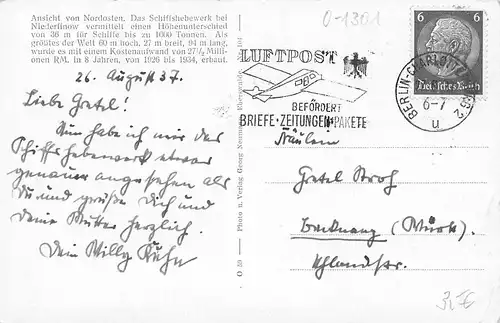 Ansicht von Nordosten. Das Schiffshebewerk bei
Niederfinow vermittelt einen Höhenunterschied
von 36 m für Schiffe bis zu 1000 Tonnen. Als
größtes der Welt 60 m hoch, 27 m breit, 94 m lang,
wurde es mit einem Kostenaufwand von 27½ Milli-
onen RM. in 8 Jahren, von 1926 bis 1934, erbaut.
26. August 37.
Liebe Gretel!
Nun habe ich mir das
Schiffshebewerk etwas
genauer angesehen als
Du und grüße Dich und
Deine Mutter herzlich.
Dein Willy Kuhn
Photo u. Verlag Georg
O 50
0-1301
LUFTPOST
BEFÖRDERT
BRIEFE·ZEITUNGEN·PAKETE
BERLIN-CHARLOTTENBURG 2
6-7
u
6 6
Deutsches Reich
Fräulein
Gretel Stroh
Backnang (Württ.)